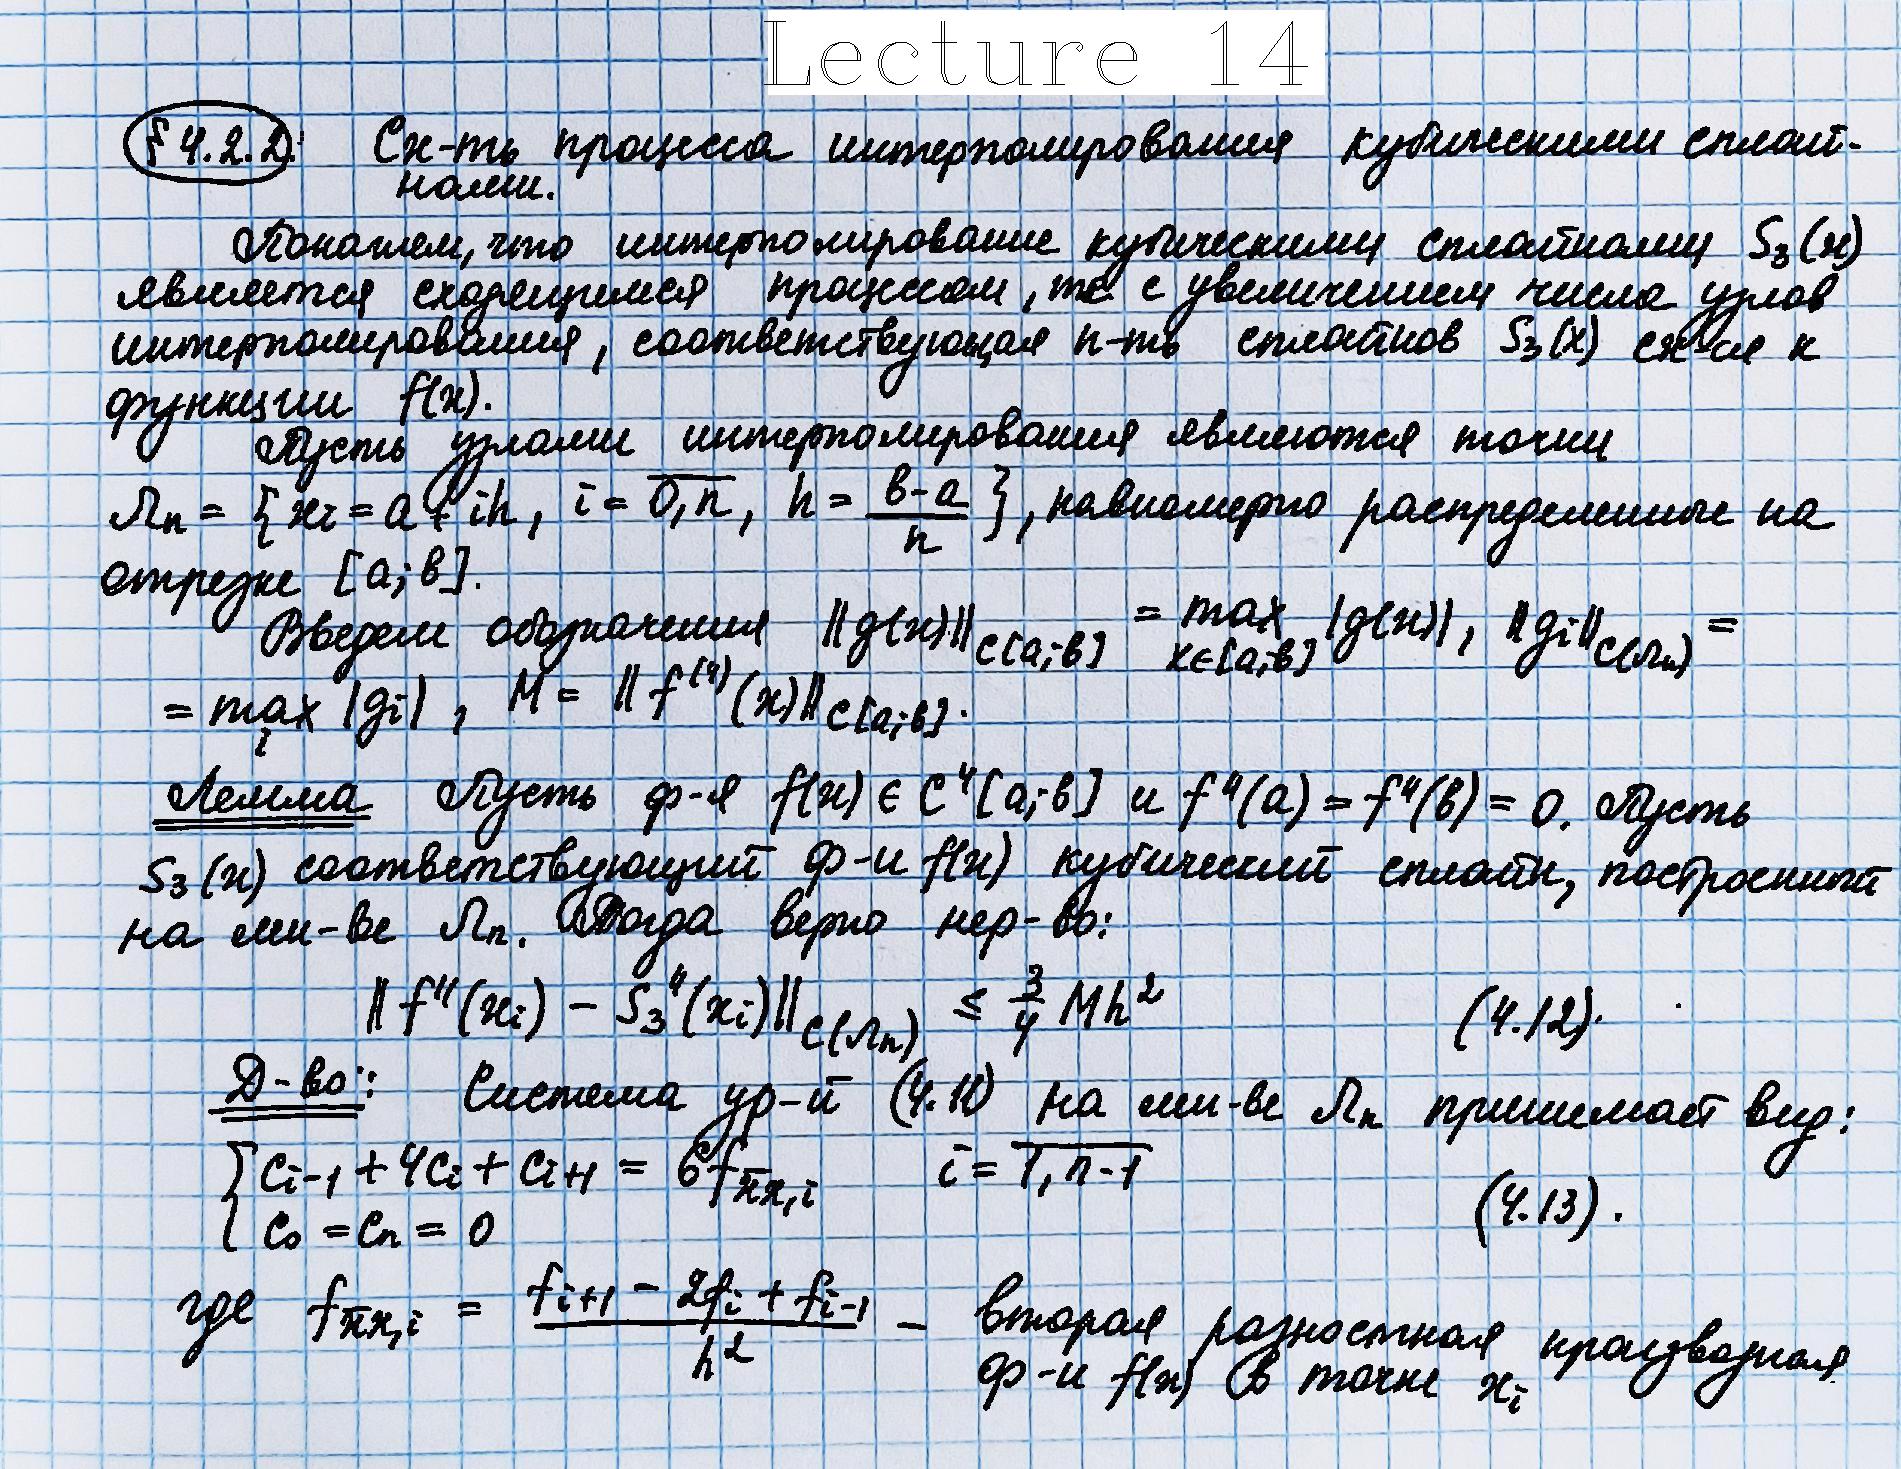 Lecture 14
§ 4.2.2. Сх-ть процесса интерполирования кубическими сплай-
нами.
Покажем, что интерполирование кубическими сплайнами S₃(x)
является сходящимся процессом, т.е. с увеличением числа узлов
интерполирования, соответствующая п-ть сплайнов S₃(x) сх-ся к
функции f(x).
Пусть узлами интерполирования являются точки
Λₙ = {xᵢ = a + ih, i = 0,n, h = (в-a)/n}, равномерно распределенные на
отрезке [a;в].
Введем обозначения ||g(x)||_C[a;в] = max_{x∈[a;в]} |g(x)|, ||gᵢ||_C(Λₙ) =
= max_i |gᵢ|, M = ||f⁽⁴⁾(x)||_C[a;в].
Лемма Пусть ф-я f(x) ∈ C⁴[a;в] и f''(a) = f''(в) = 0. Пусть
S₃(x) соответствующий ф-и f(x) кубический сплайн, построенный
на мн-ве Λₙ. Тогда верно нер-во:
||f''(xᵢ) - S₃''(xᵢ)||_C(Λₙ) ≤ 3/4 Mh² (4.12).
Д-во: Система ур-й (4.11) на мн-ве Λₙ принимает вид:
{ cᵢ₋₁ + 4cᵢ + cᵢ₊₁ = 6f_x̄x,i i = 1,n-1
c₀ = cₙ = 0 (4.13).
где f_x̄x,i = (fᵢ₊₁ - 2fᵢ + fᵢ₋₁)/h² - вторая разностная производная
ф-и f(x) в точке xᵢ